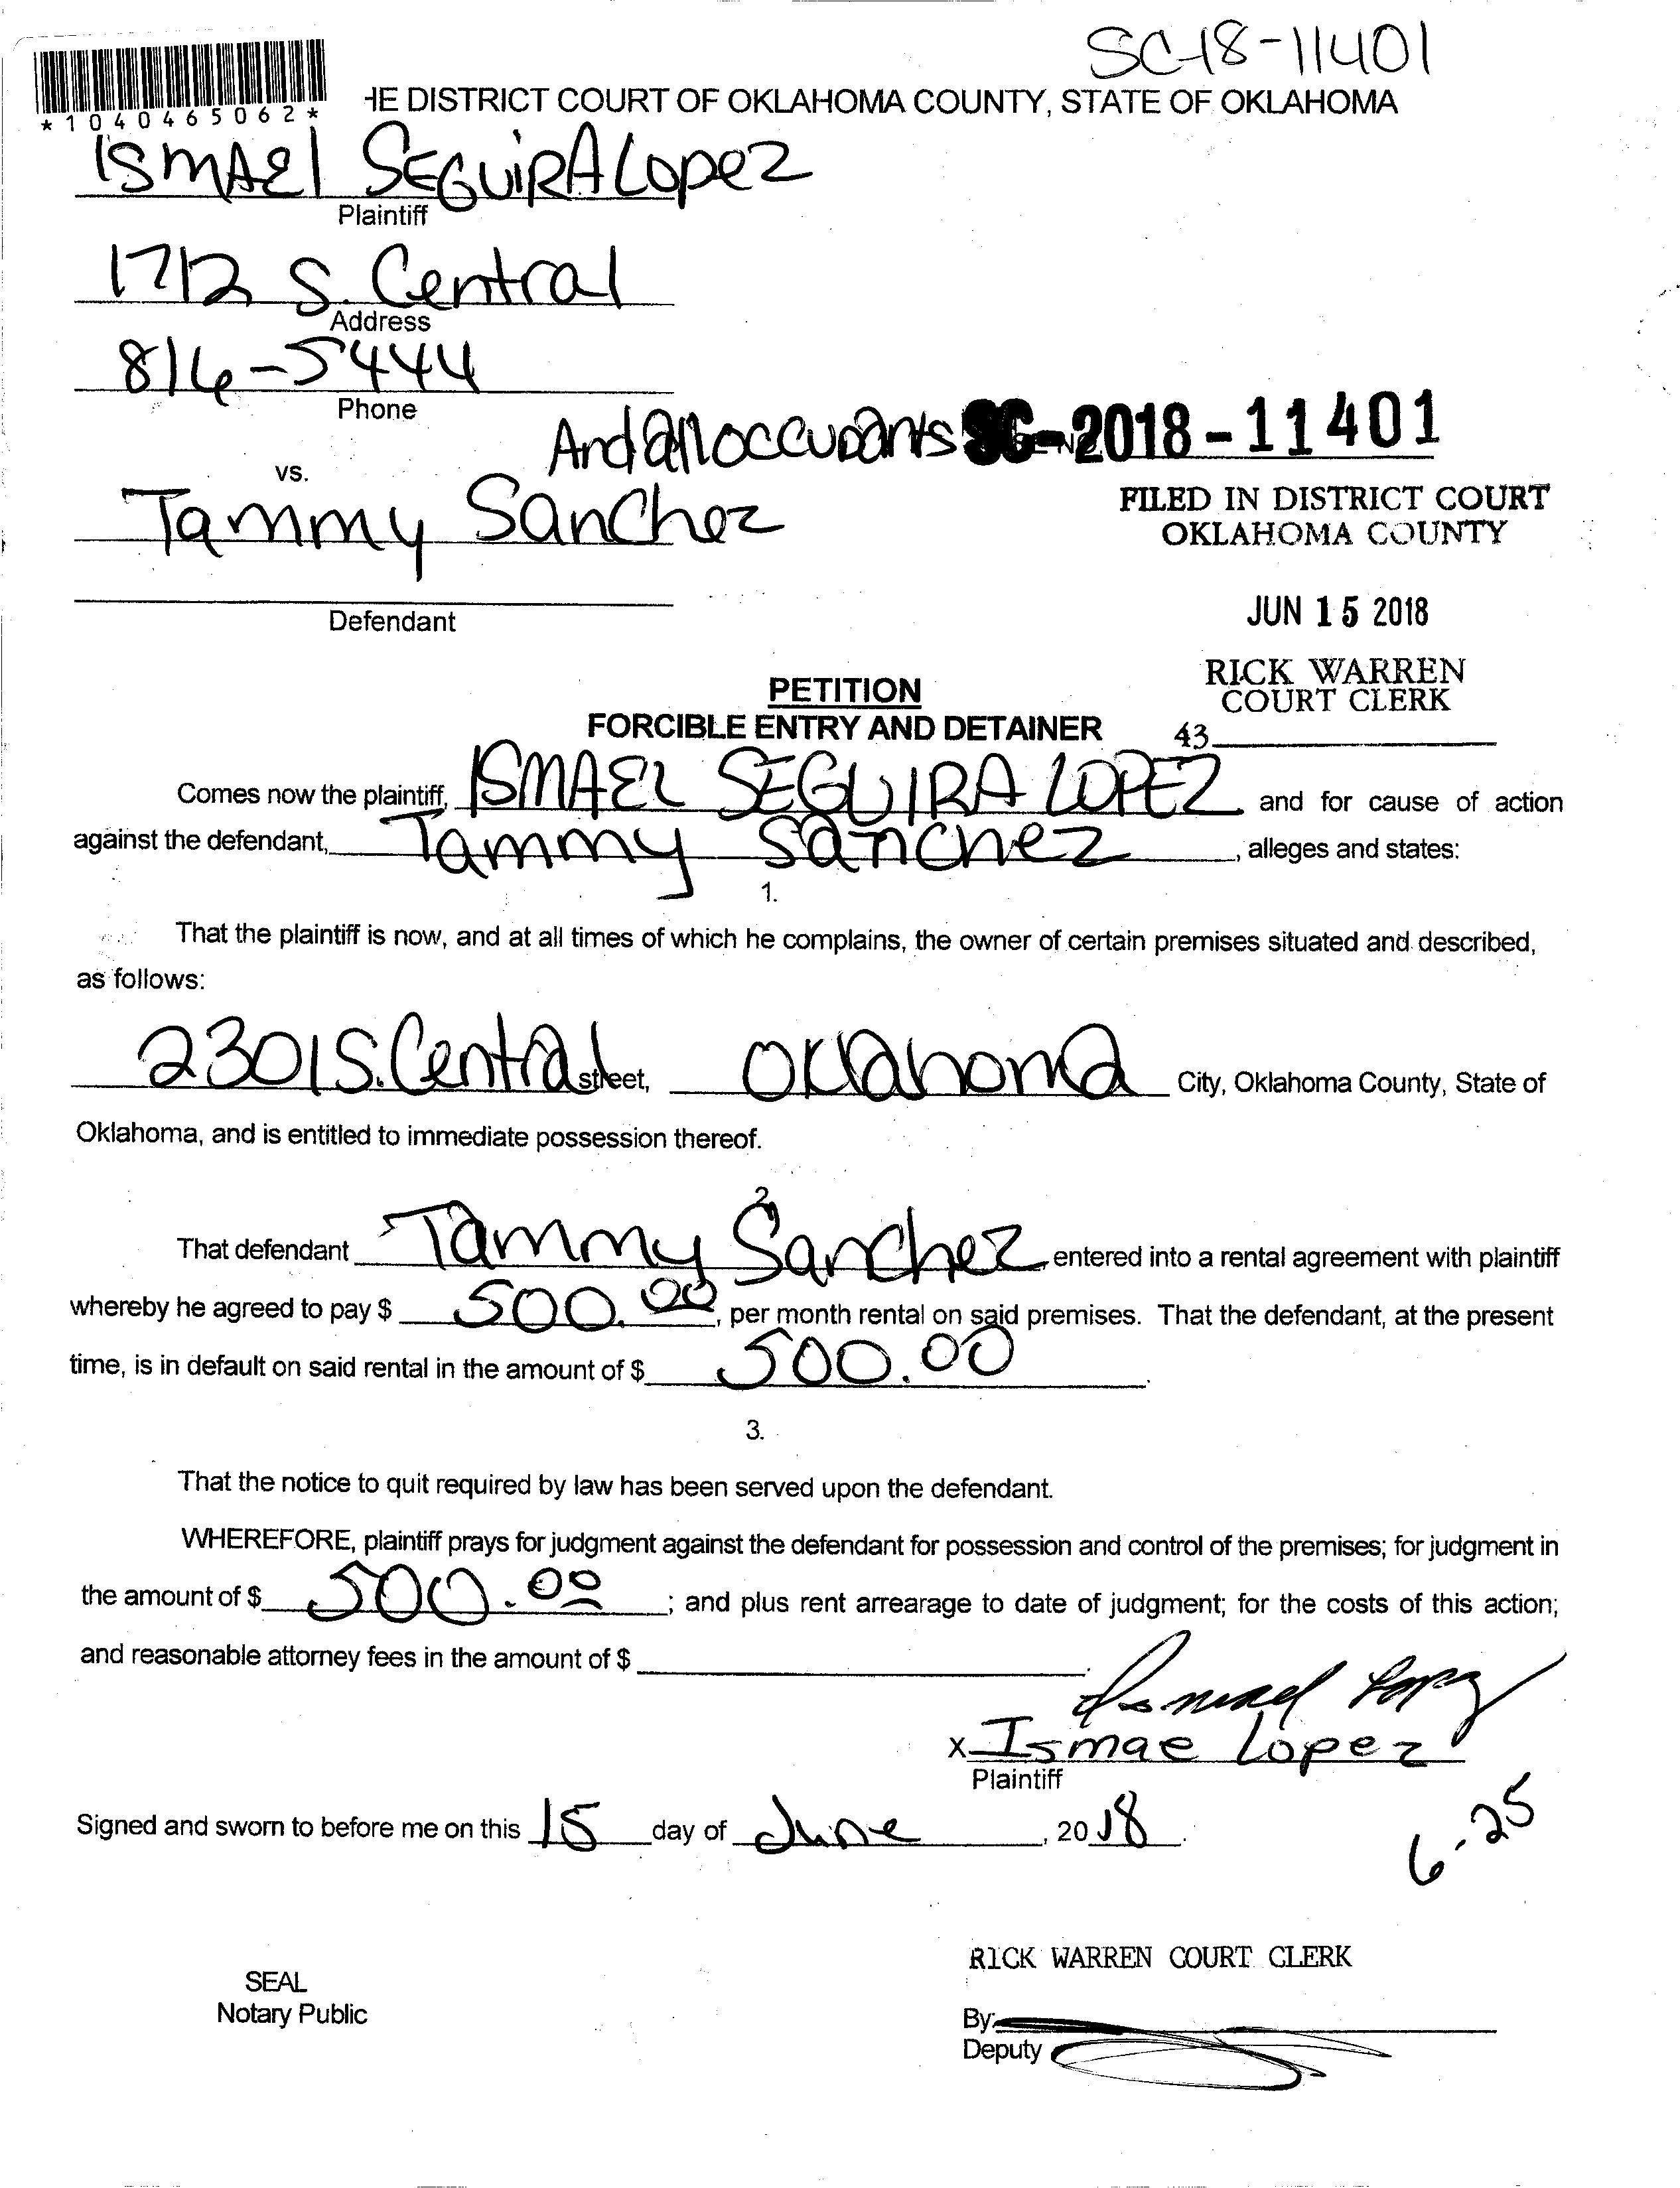 SC-18-11401
*1040465062*
HE DISTRICT COURT OF OKLAHOMA COUNTY, STATE OF OKLAHOMA
ISMAEl SEGUIRA Lopez
Plaintiff
1712 S. Central
Address
816-5444
Phone
And all occupants SC-2018-11401
vs.
Tammy Sanchez
FILED IN DISTRICT COURT
OKLAHOMA COUNTY
Defendant
JUN 15 2018
PETITION
RICK WARREN
COURT CLERK
FORCIBLE ENTRY AND DETAINER
43
Comes now the plaintiff, ISMAEL SEGUIRA LOPEZ and for cause of action
against the defendant, Tammy Sanchez, alleges and states:
1.
That the plaintiff is now, and at all times of which he complains, the owner of certain premises situated and described,
as follows:
2301 S. Central street, Oklahoma City, Oklahoma County, State of
Oklahoma, and is entitled to immediate possession thereof.
2.
That defendant Tammy Sanchez, entered into a rental agreement with plaintiff
whereby he agreed to pay $ 500.00, per month rental on said premises. That the defendant, at the present
time, is in default on said rental in the amount of $ 500.00.
3.
That the notice to quit required by law has been served upon the defendant.
WHEREFORE, plaintiff prays for judgment against the defendant for possession and control of the premises; for judgment in
the amount of $ 500.00; and plus rent arrearage to date of judgment; for the costs of this action;
and reasonable attorney fees in the amount of $.
Ismael Lopez
X Ismae Lopez
Plaintiff
Signed and sworn to before me on this 15 day of June, 2018.
6-25
RICK WARREN COURT CLERK
SEAL
Notary Public
By:
Deputy